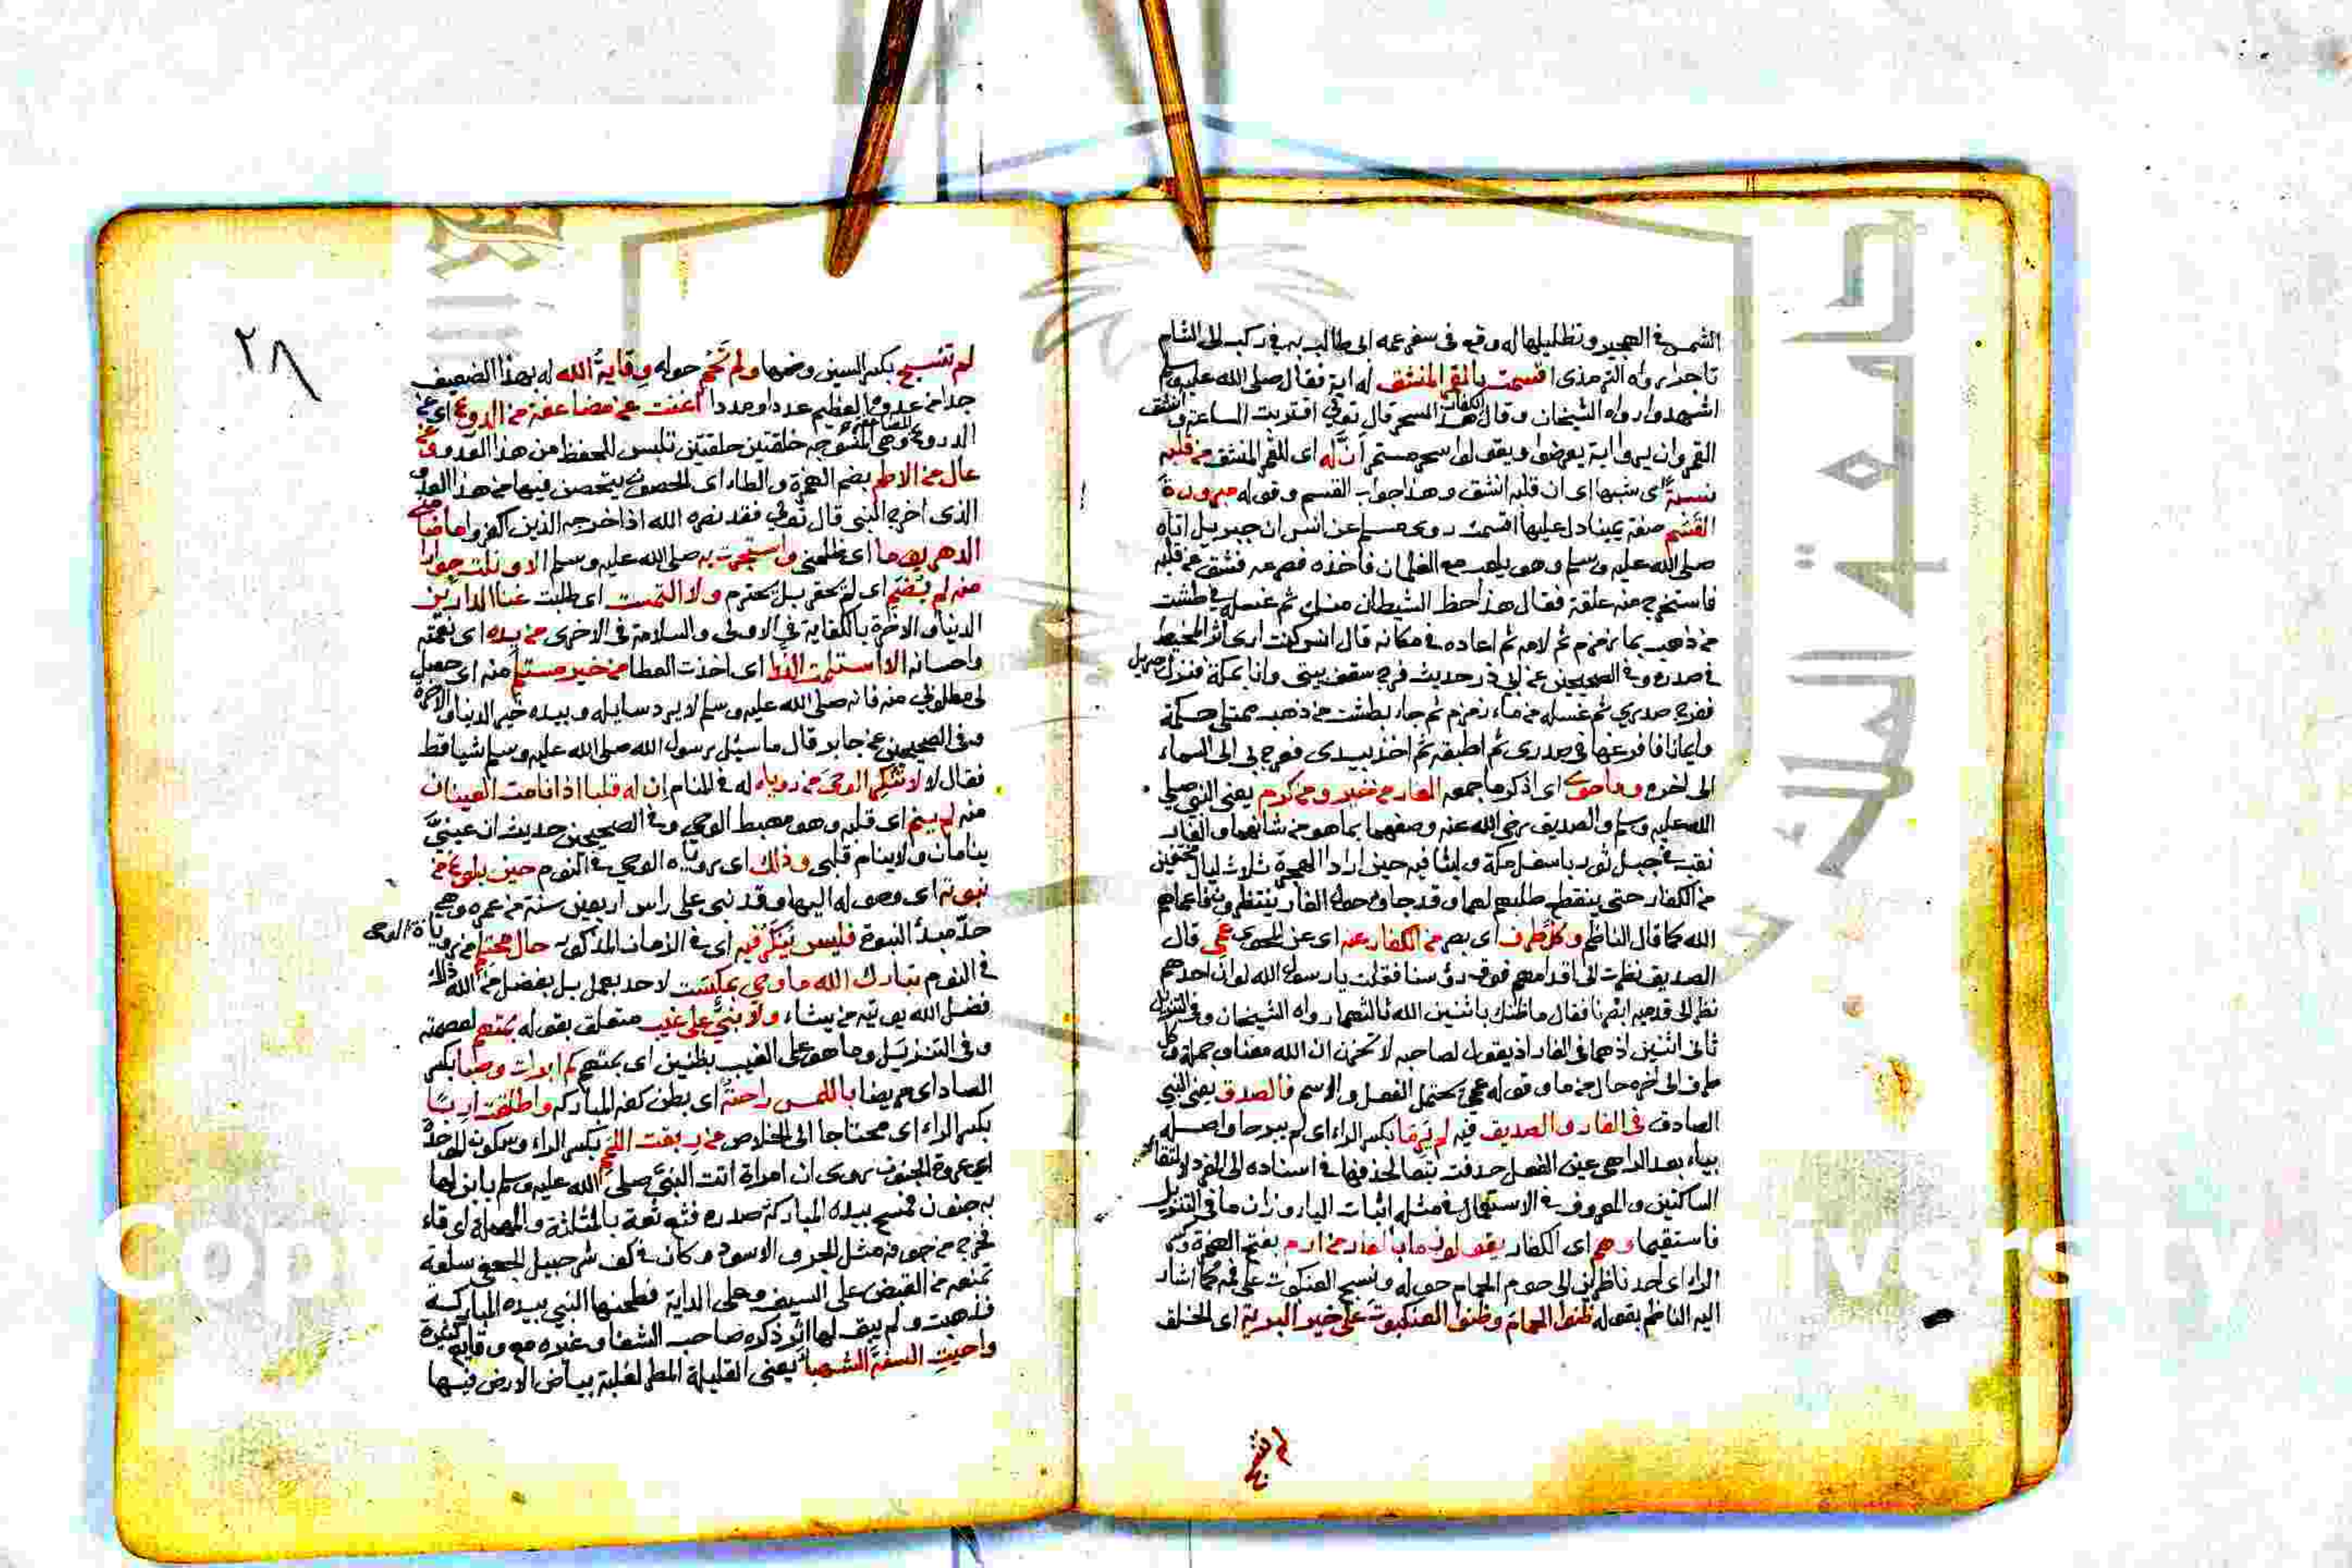 الشمس في الهجير وتظليلها له وقع في سفر عمه ابي طالب به في ركب الى الشام
تاجدا رواه الترمذى اقسمت بالقمر المنشق له اية فقال صلى الله عليه وسلم
اشهدوا رواه الشيخان وقال الكفار هذا السحر قال تعالى اقتربت الساعة وانشق
القمر وان يروا اية يعرضوا ويقولوا سحر مستمر ان له اى للقمر المنشق من قلبه
نسبة اى شبها اى ان قلبه انشق وهذا جواب القسم وقوله مبرورة
القسم صفة يمينا دل عليها اقسمت روى مسلم عن انس ان جبريل اتاه
صلى الله عليه وسلم وهو يلعب مع الغلمان فأخذه فصرعه فشق عن قلبه
فاستخرج منه علقة فقال هذا حظ الشيطان منك ثم غسله في طشت
من ذهب بماء زمزم ثم لامه ثم اعاده في مكانه قال انس كنت ارى اثر المخيط
في صدره وفي الصحيحين عن ابي ذر حديث فرج سقف بيتى وانا بمكة فنزل جبريل
ففرج صدري ثم غسله من ماء زمزم ثم جاء بطشت من ذهب ممتلئ حكمة
وايمانا فافرغها في صدرى ثم اطبقه ثم اخذ بيدى فعرج بي الى السماء
الى اخره وما حوى اى اذكر ما جمعه الغار من خير ومن كرم يعنى النبي صلى
الله عليه وسلم والصديق رضي الله عنه وصفهما بما هو من شانهما والغار
نقب في جبل ثور باسفل مكة ولبثا فيه حين ارادا الهجرة ثلاث ليال مختفين
من الكفار حتى ينقطع طلبهم لهما وقد جاؤ حول الغار ينتظرونهما فاعماهم
الله كما قال الناظم وكل طرف اى بصر من الكفار عنه اى عن المحوى عمى قال
الصديق نظرت الى اقدامهم فوق رؤسنا فقلت يا رسول الله لو ان احدهم
نظر الى قدميه ابصرنا فقال ما ظنك باثنين الله ثالثهما رواه الشيخان وفي التنزيل
ثانى اثنين اذ هما في الغار اذ يقول لصاحبه لا تحزن ان الله معنا وجملة وكل
طرف الى اخره حال من ما وقوله عمى يحتمل الفعل والاسم فالصدق يعنى النبي
الصادق في الغار والصديق فيه لم يرما بكسر الراء اى لم يبرحا واصله
بياء بعد الراء هي عين الفعل حذفت تبعا لحذفها في اسناده الى المفرد لالتقاء
الساكنين والمعروف في الاستعمال في مثله اثبات الياء وزان ما في التنزيل
فاستقيما وهم اى الكفار يقولون ما بالغار من ارم بفتح الهمزة وكسر
الراء اى احد ناظرين الى حوم الحمام حوله ونسج العنكبوت على فمه كما اشار
اليه الناظم بقوله ظنوا الحمام وظنوا العنكبوت على خير البرية اى الخلق
لم تنسج
٢٨
لم تنسج بكسر السين وضمها ولم تحم حوله وقاية الله له بهذا الضعيف
جدا من عدوه العظيم عددا وعددا اغنت عن مضاعفة من الدروع اى عن
الدروع المضاعفة وهي المنسوجة حلقتين حلقتين تلبس للحفظ من هذا العدو وعن
عال من الاطم بضم الهمزة والطاء اى الحصون يتحصن فيها من هذا العدو
الذى اخرج النبى قال تعالى فقد نصره الله اذ اخرجه الذين كفروا ما ضامنى
الدهر يوما اى ظلمنى واستجرت به صلى الله عليه وسلم الا ونلت جوارا
منه لم يضم اى لم يحقر بل يحترم ولا التمست اى طلبت غنى الدارين
الدنيا والاخرة بالكفاية في الاولى والسلامة في الاخرى من يده اى نعمته
واحسانه الا استلمت الندا اى اخذت العطا من خير مستلم منه اى حصل
لى مطلوبي منه فانه صلى الله عليه وسلم لا يرد سايله وبيده خير الدنيا والاخرة
وفي الصحيحين عن جابر قال ما سئل رسول الله صلى الله عليه وسلم شيا قط
فقال لا لا تنكر الوحى من روياه له في المنام ان له قلبا اذا نامت العينان
منه لم ينم اى قلبه وهو مهبط الوحي وفي الصحيحين حديث ان عينيّ
ينامان ولا ينام قلبى وذلك اى روياه الوحي في النوم حين بلوغ من
نبوته اى وصوله اليها وقد نبى على راس اربعين سنة من عمره وهي
حد مبدأ النبوة فليس ينكر فيه اى في الزمان المذكور حال محتلم من روياه الوحى
في النوم تبارك الله ما وحي بمكتسب لاحد بعمل بل بفضل من الله ذلك
فضل الله يوتيه من يشاء ولا نبىّ على غيب متعلق بقوله بمتهم لعصمته
وفي التنزيل وما هو على الغيب بظنين اى بمتهم كم ابرات وصبا بكسر
الصاد اى مريضا باللمس راحته اى بطن كفه المباركة واطلقت اربا
بكسر الراء اى محتاجا الى الخلاص من ربقة اللمم بكسر الراء وسكون الموحدة
اى عروة الجنون روى ان امراة اتت النبي صلى الله عليه وسلم بابن لها
به جنون فمسح بيده المباركة صدره فثع ثعة بالمثلثة والمهملة اى قاء
فخرج من جوفه مثل الجرو الاسود وكان في كف شرحبيل الجعفي سلعة
تمنعه من القبض على السيف وعلى الداية فطحنها النبي بيده المباركة
فذهبت ولم يبق لها اثر ذكره صاحب الشفا وغيره مع وقايع كثيرة
واحيت السنة الشهبا يعنى القليلة المطر لغلبة بياض الارض فيها